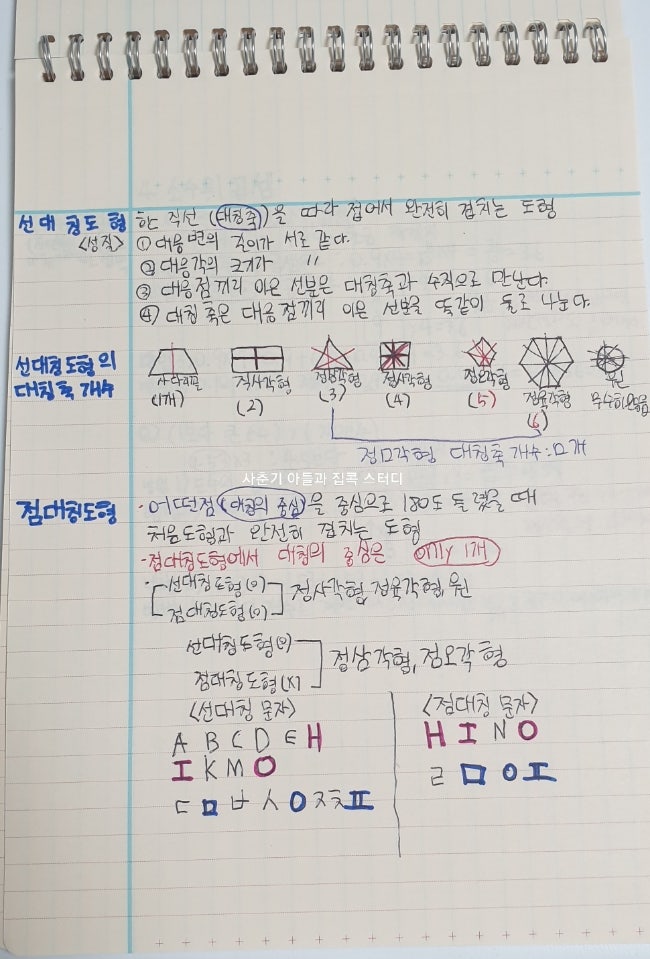 선대칭도형
<성질>
한 직선 (대칭축)을 따라 접어서 완전히 겹치는 도형
① 대응변의 길이가 서로 같다.
② 대응각의 크기가 "
③ 대응점끼리 이은 선분은 대칭축과 수직으로 만난다.
④ 대칭축은 대응점끼리 이은 선분을 똑같이 둘로 나눈다.
선대칭도형의
대칭축 개수
사다리꼴 직사각형 정삼각형 정사각형 정오각형 정육각형 원
(1개) (2) (3) (4) (5) (6) 무수히많음
정ㅁ각형 대칭축 개수:ㅁ개
사춘기 아들과 집콕 스터디
점대칭도형
·어떤점(대칭의 중심)을 중심으로 180도 돌렸을 때
처음도형과 완전히 겹치는 도형
·점대칭도형에서 대칭의 중심은 only 1개
·선대칭도형(o)
점대칭도형(o)
정사각형, 정육각형, 원
선대칭도형(o)
점대칭도형(X)
정삼각형, 정오각형
<선대칭 문자>
A B C D E H
I K M O
ㄷ ㅁ ㅂ ㅅ ㅇ ㅈ ㅊ ㅍ
<점대칭 문자>
H I N O
ㄹ ㅁ ㅇ ㅍ